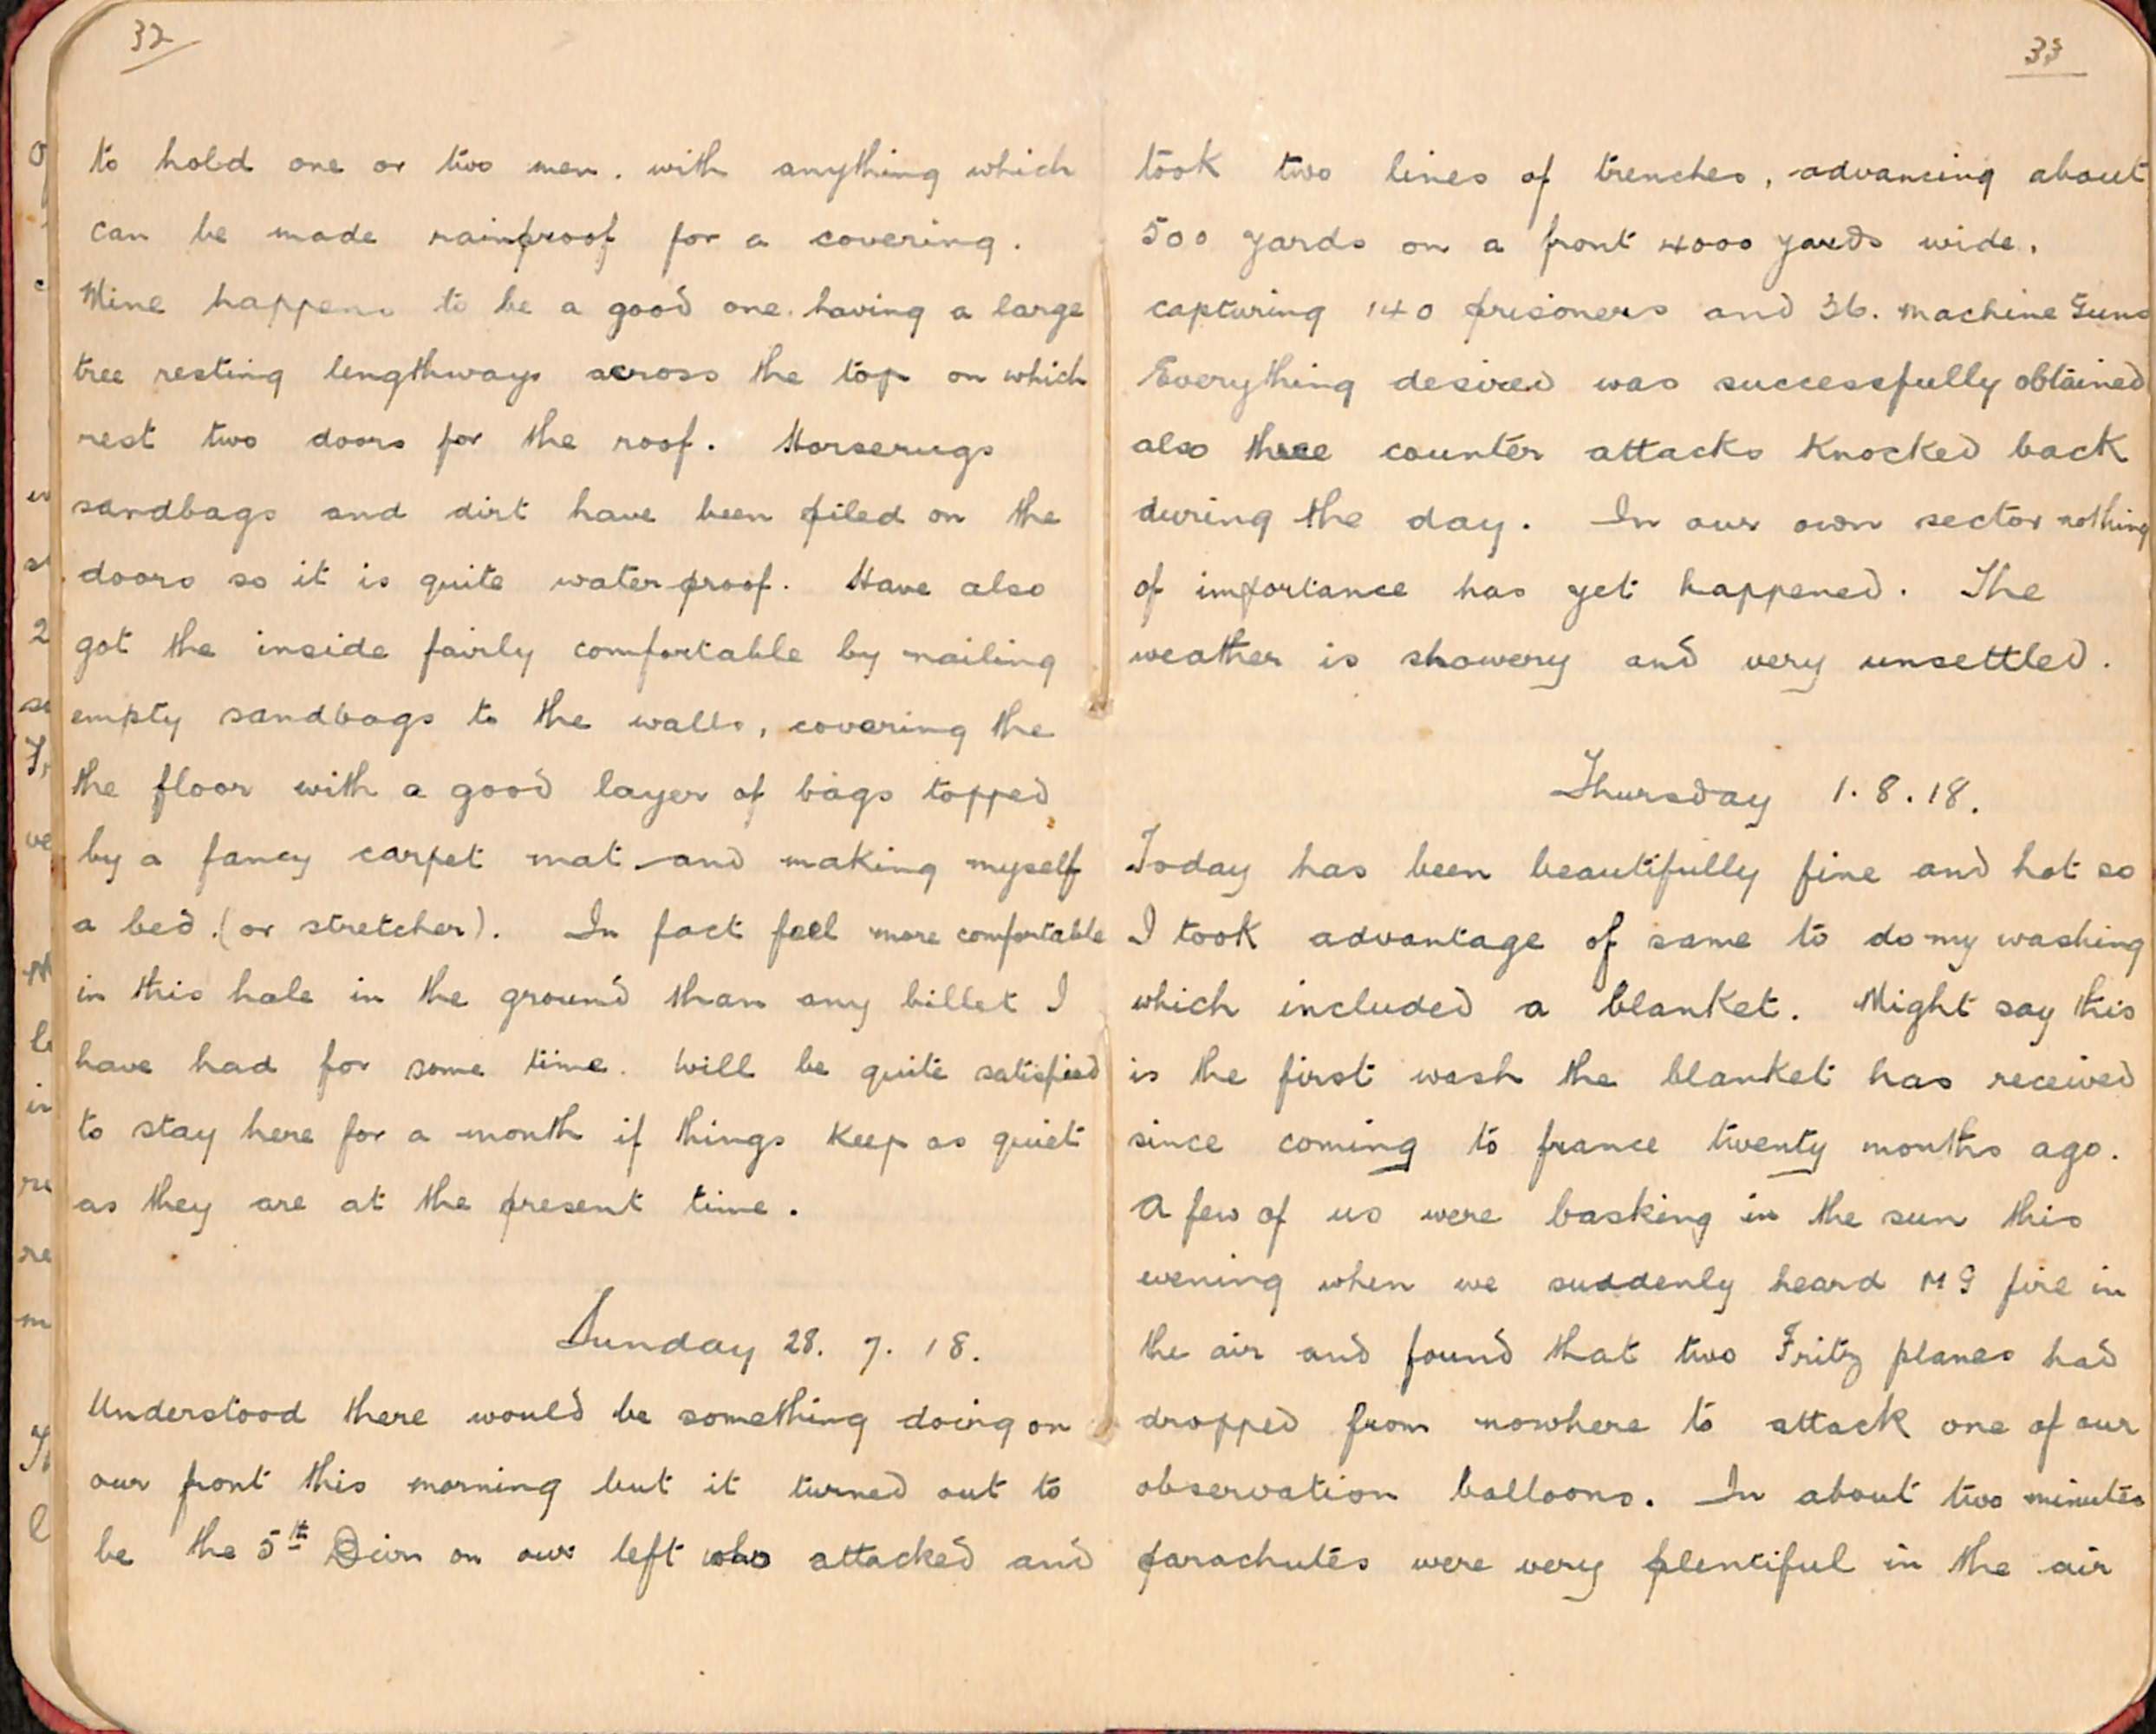 32
to hold one or two men. with anything which
can be made rainproof for a covering.
Mine happens to be a good one. having a large
tree resting lengthways across the top on which
rest two doors for the roof. Horserugs
sandbags and dirt have been piled on the
doors so it is quite waterproof. Have also
got the inside fairly comfortable by nailing
empty sandbags to the walls, covering the
the floor with a good layer of bags topped
by a fancy carpet mat and making myself
a bed. (or stretcher). In fact feel more comfortable
in this hole in the ground than any billet I
have had for some time. Will be quite satisfied
to stay here for a month if things keep as quiet
as they are at the present time.
Sunday 28. 7. 18.
Understood there would be something doing on
our front this morning but it turned out to
be the 5th Divn on our left who attacked and
33
took two lines of trenches, advancing about
500 yards on a front 4000 yards wide.
capturing 140 prisoners and 36. machine Guns
Everything desired was successfully obtained
also three counter attacks knocked back
during the day. In our own sector nothing
of importance has yet happened. The
weather is showery and very unsettled.
Thursday 1.8.18.
Today has been beautifully fine and hot so
I took advantage of same to do my washing
which included a blanket. Might say this
is the first wash the blanket has received
since coming to france twenty months ago.
A few of us were basking in the sun this
evening when we suddenly heard MG fire in
the air and found that two Fritz planes had
dropped from nowhere to attack one of our
observation balloons. In about two minutes
parachutes were very plentiful in the air